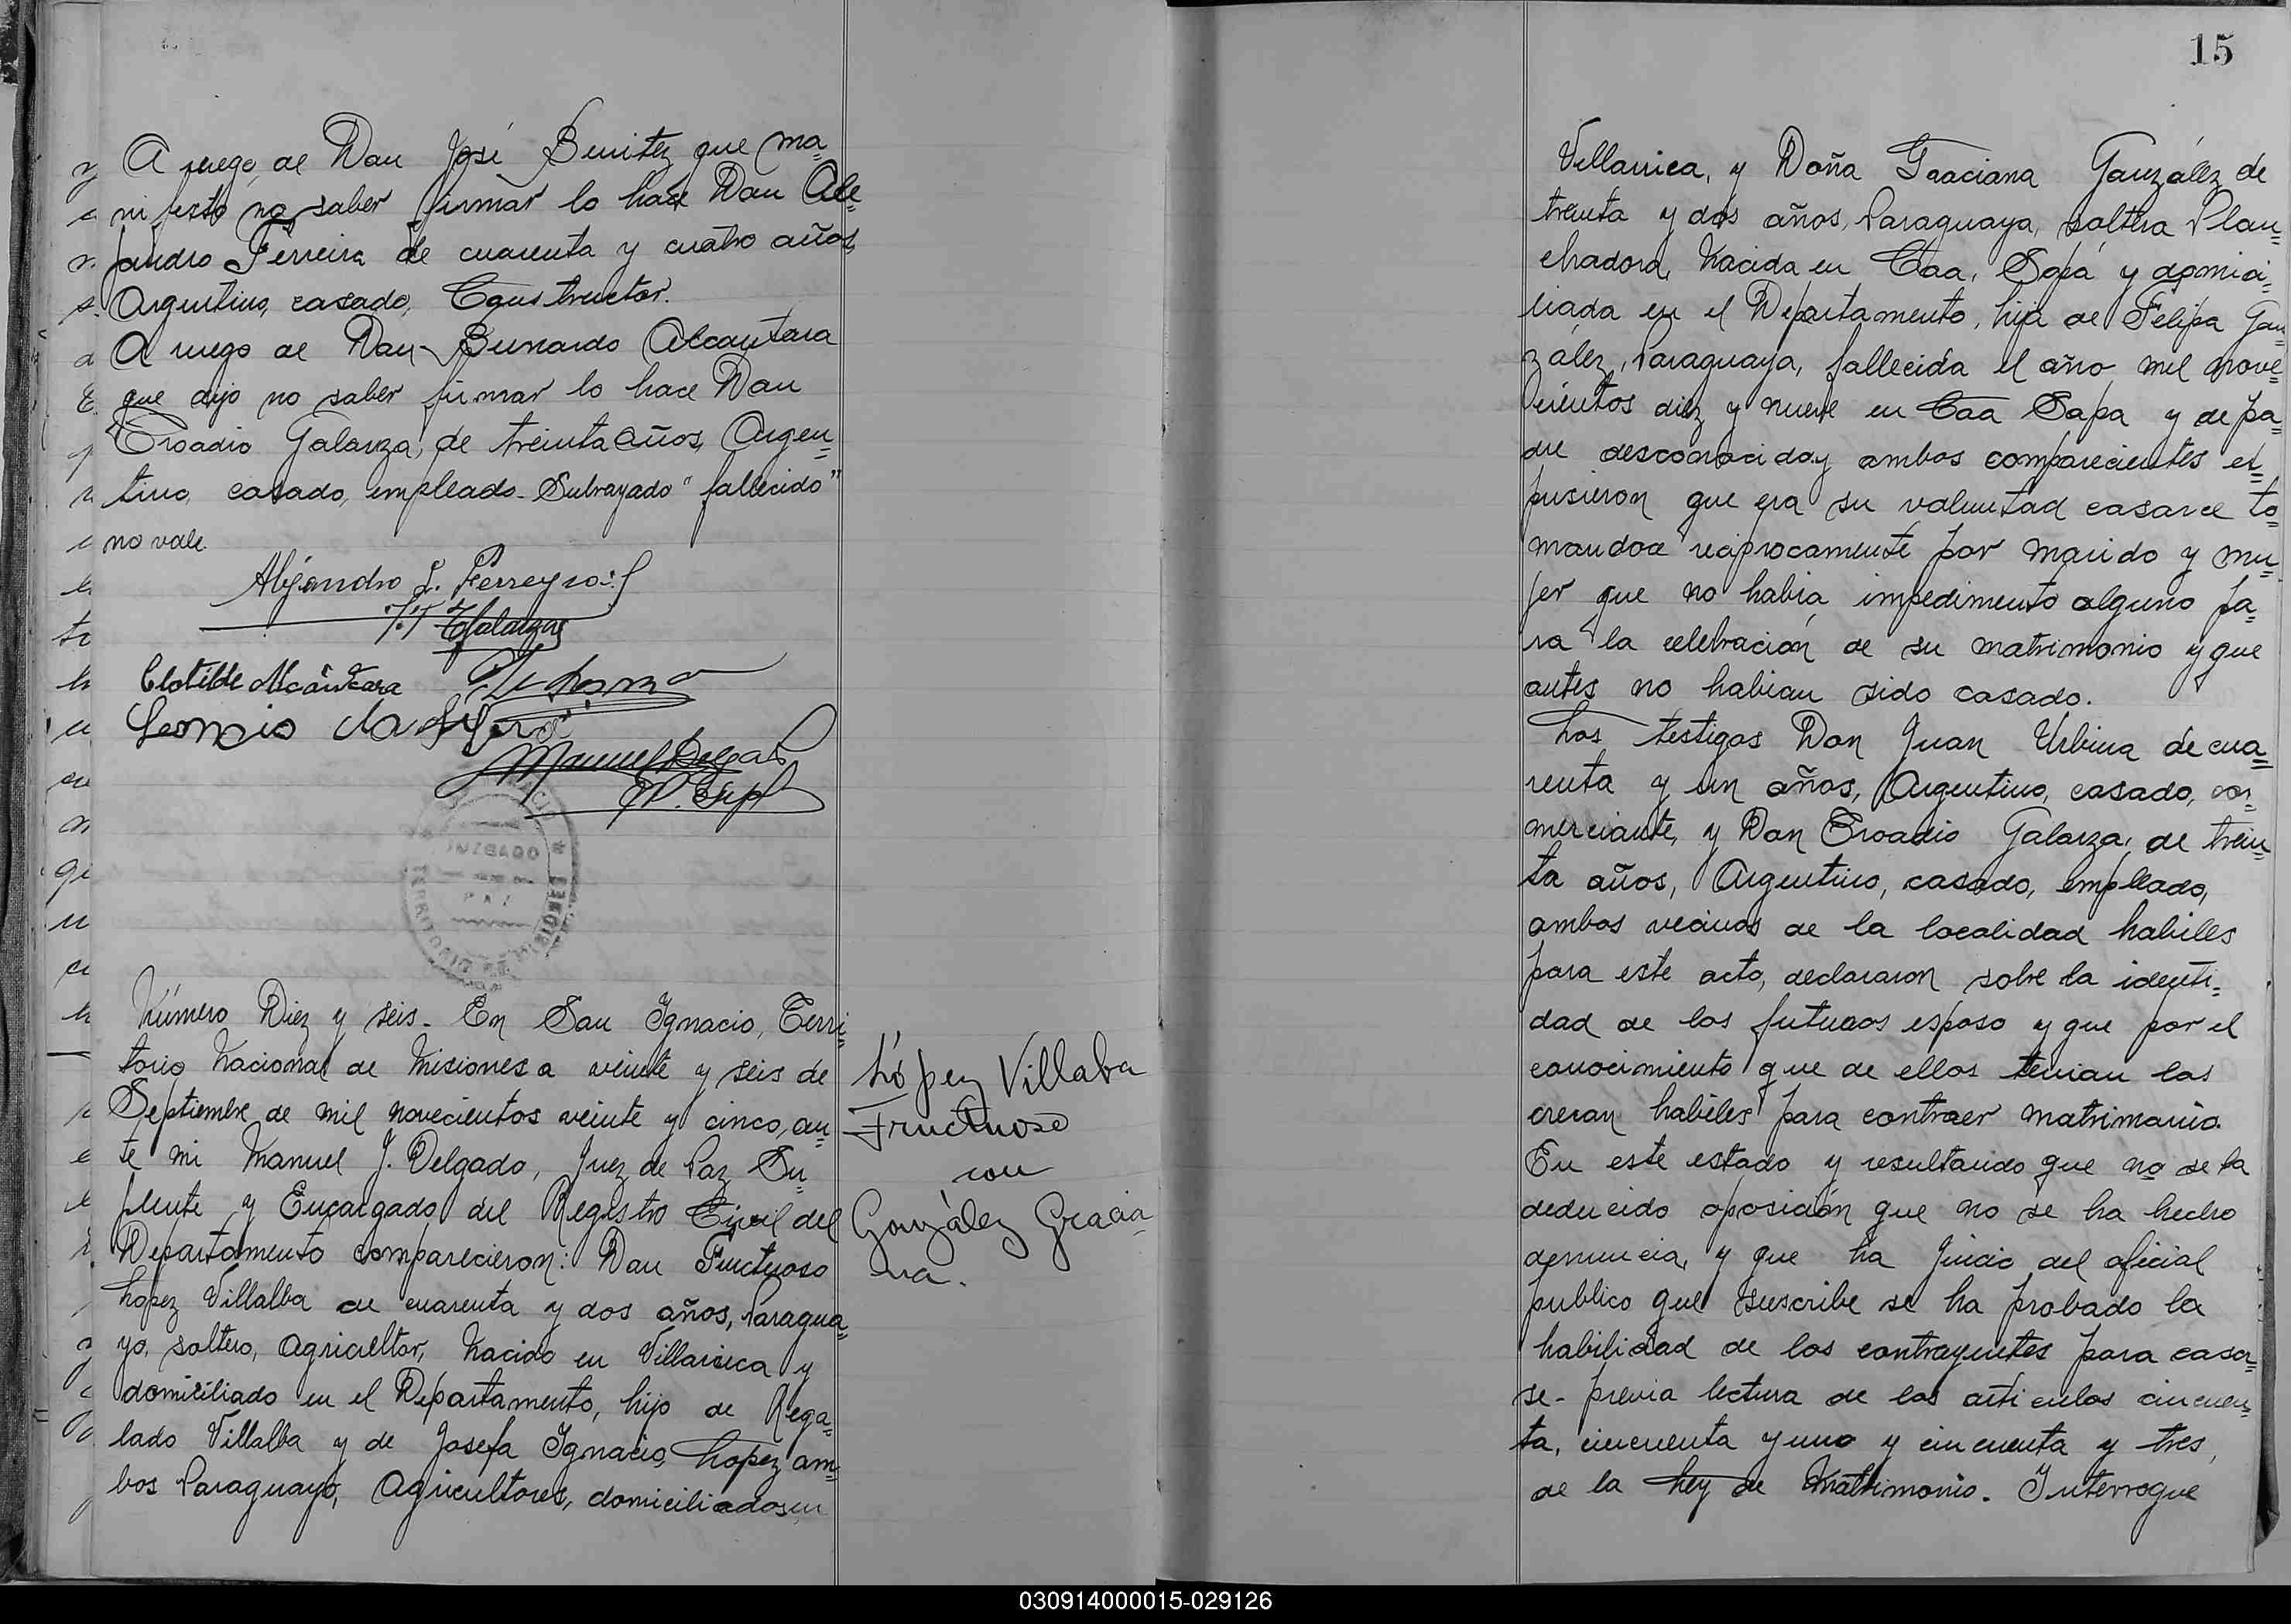 A ruego, de Don José Benitez que ma=
nifestó no saber firmar lo hace Don Ale=
jandro Ferreira de cuarenta y cuatro años,
Argentino, casado, Constructor.
A ruego de Don Bernardo Alcantara
que dijo no saber firmar lo hace Don
Eroadio Galarza, de treinta años, Argen=
tino, casado, empleado. Subrayado "fallecido"
no vale.
Alejandro L. Ferreyra
Galarza
Clotilde Alcántara
Leoncio
Manuel Delgado
J. P. Supl
JUZGADO
PAZ
TERRITORIO DE MISIONES
Número Diez y seis. En San Ignacio, Terri
torio Nacional de Misiones a veinte y seis de
Septiembre de mil novecientos veinte y cinco, an=
te mi Manuel J. Delgado, Juez de Paz Su=
plente y Encargado del Registro Civil del
Departamento comparecieron: Don Fructuoso
Lopez Villalba de cuarenta y dos años, Paragua=
yo, soltero, agricultor, Nacido en Villarrica y
domiciliado en el Departamento, hijo de Rega=
lado Villalba y de Josefa Ignacia, Lopez am=
bos Paraguayo, Agricultores, domiciliados en
López Villaba
Fructuoso
con
González Gracia=
na.
15
Villarrica, y Doña Graciana González de
treinta y dos años, Paraguaya, soltera Plan=
chadora, Nacida en Caa, Sapá y domici=
liada en el Departamento, hija de Felipa Gon
zález, Paraguaya, fallecida el año mil nove=
cientos diez y nueve en Caa Sapa y de pa=
dre desconocido y ambos comparecientes es=
pusieron que era su voluntad casarce to=
mandoce reciprocamente por marido y mu=
jer que no habia impedimento alguno pa=
ra la celebración de su matrimonio y que
antes no habian sido casado.
Los testigos Don Juan Urbina de cua=
renta y un años, Argentino, casado, co=
merciante, y Don Eroadio Galarza, de trein=
ta años, Argentino, casado, empleado,
ambos vecinos de la localidad habiles
para este acto, declararon sobre la identi=
dad de los futuros esposo y que por el
conocimiento que de ellos tenian los
creian habiles para contraer matrimonio.
En este estado y resultando que no se ha
deducido oposición que no se ha hecho
denuncia, y que ha juicio del oficial
publico que suscribe se ha probado la
habilidad de los contrayentes para casar=
se - previa lectura de los articulos cincuen=
ta, cincuenta y uno y cincuenta y tres,
de la Ley de Matrimonio. Interrogue
030914000015-029126